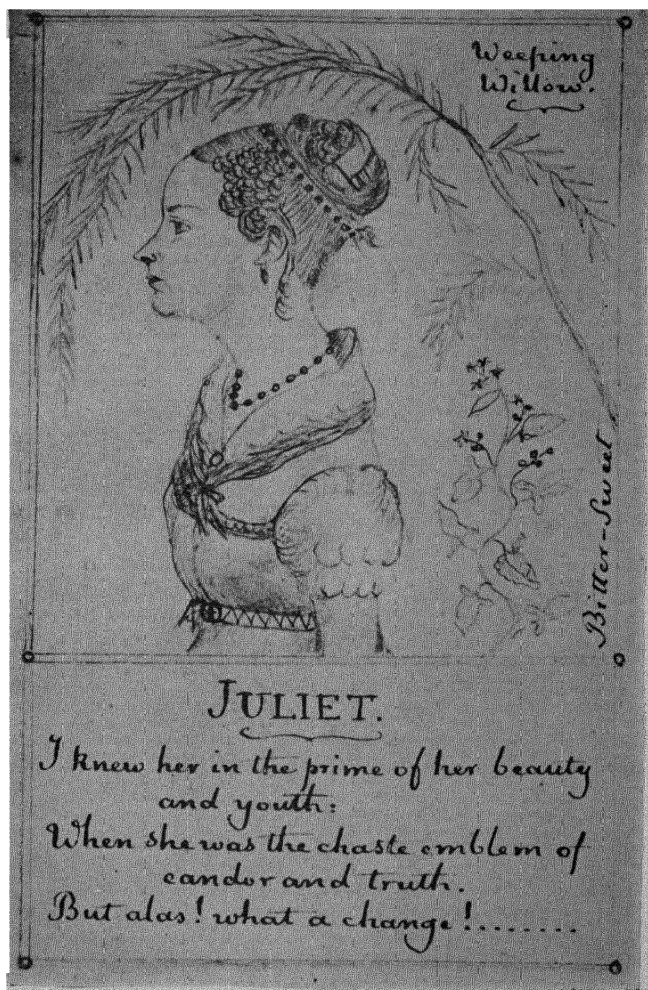 Weeping
Willow.
Bitter-Sweet
JULIET.
I knew her in the prime of her beauty
and youth:
When she was the chaste emblem of
candor and truth.
But alas! what a change!........